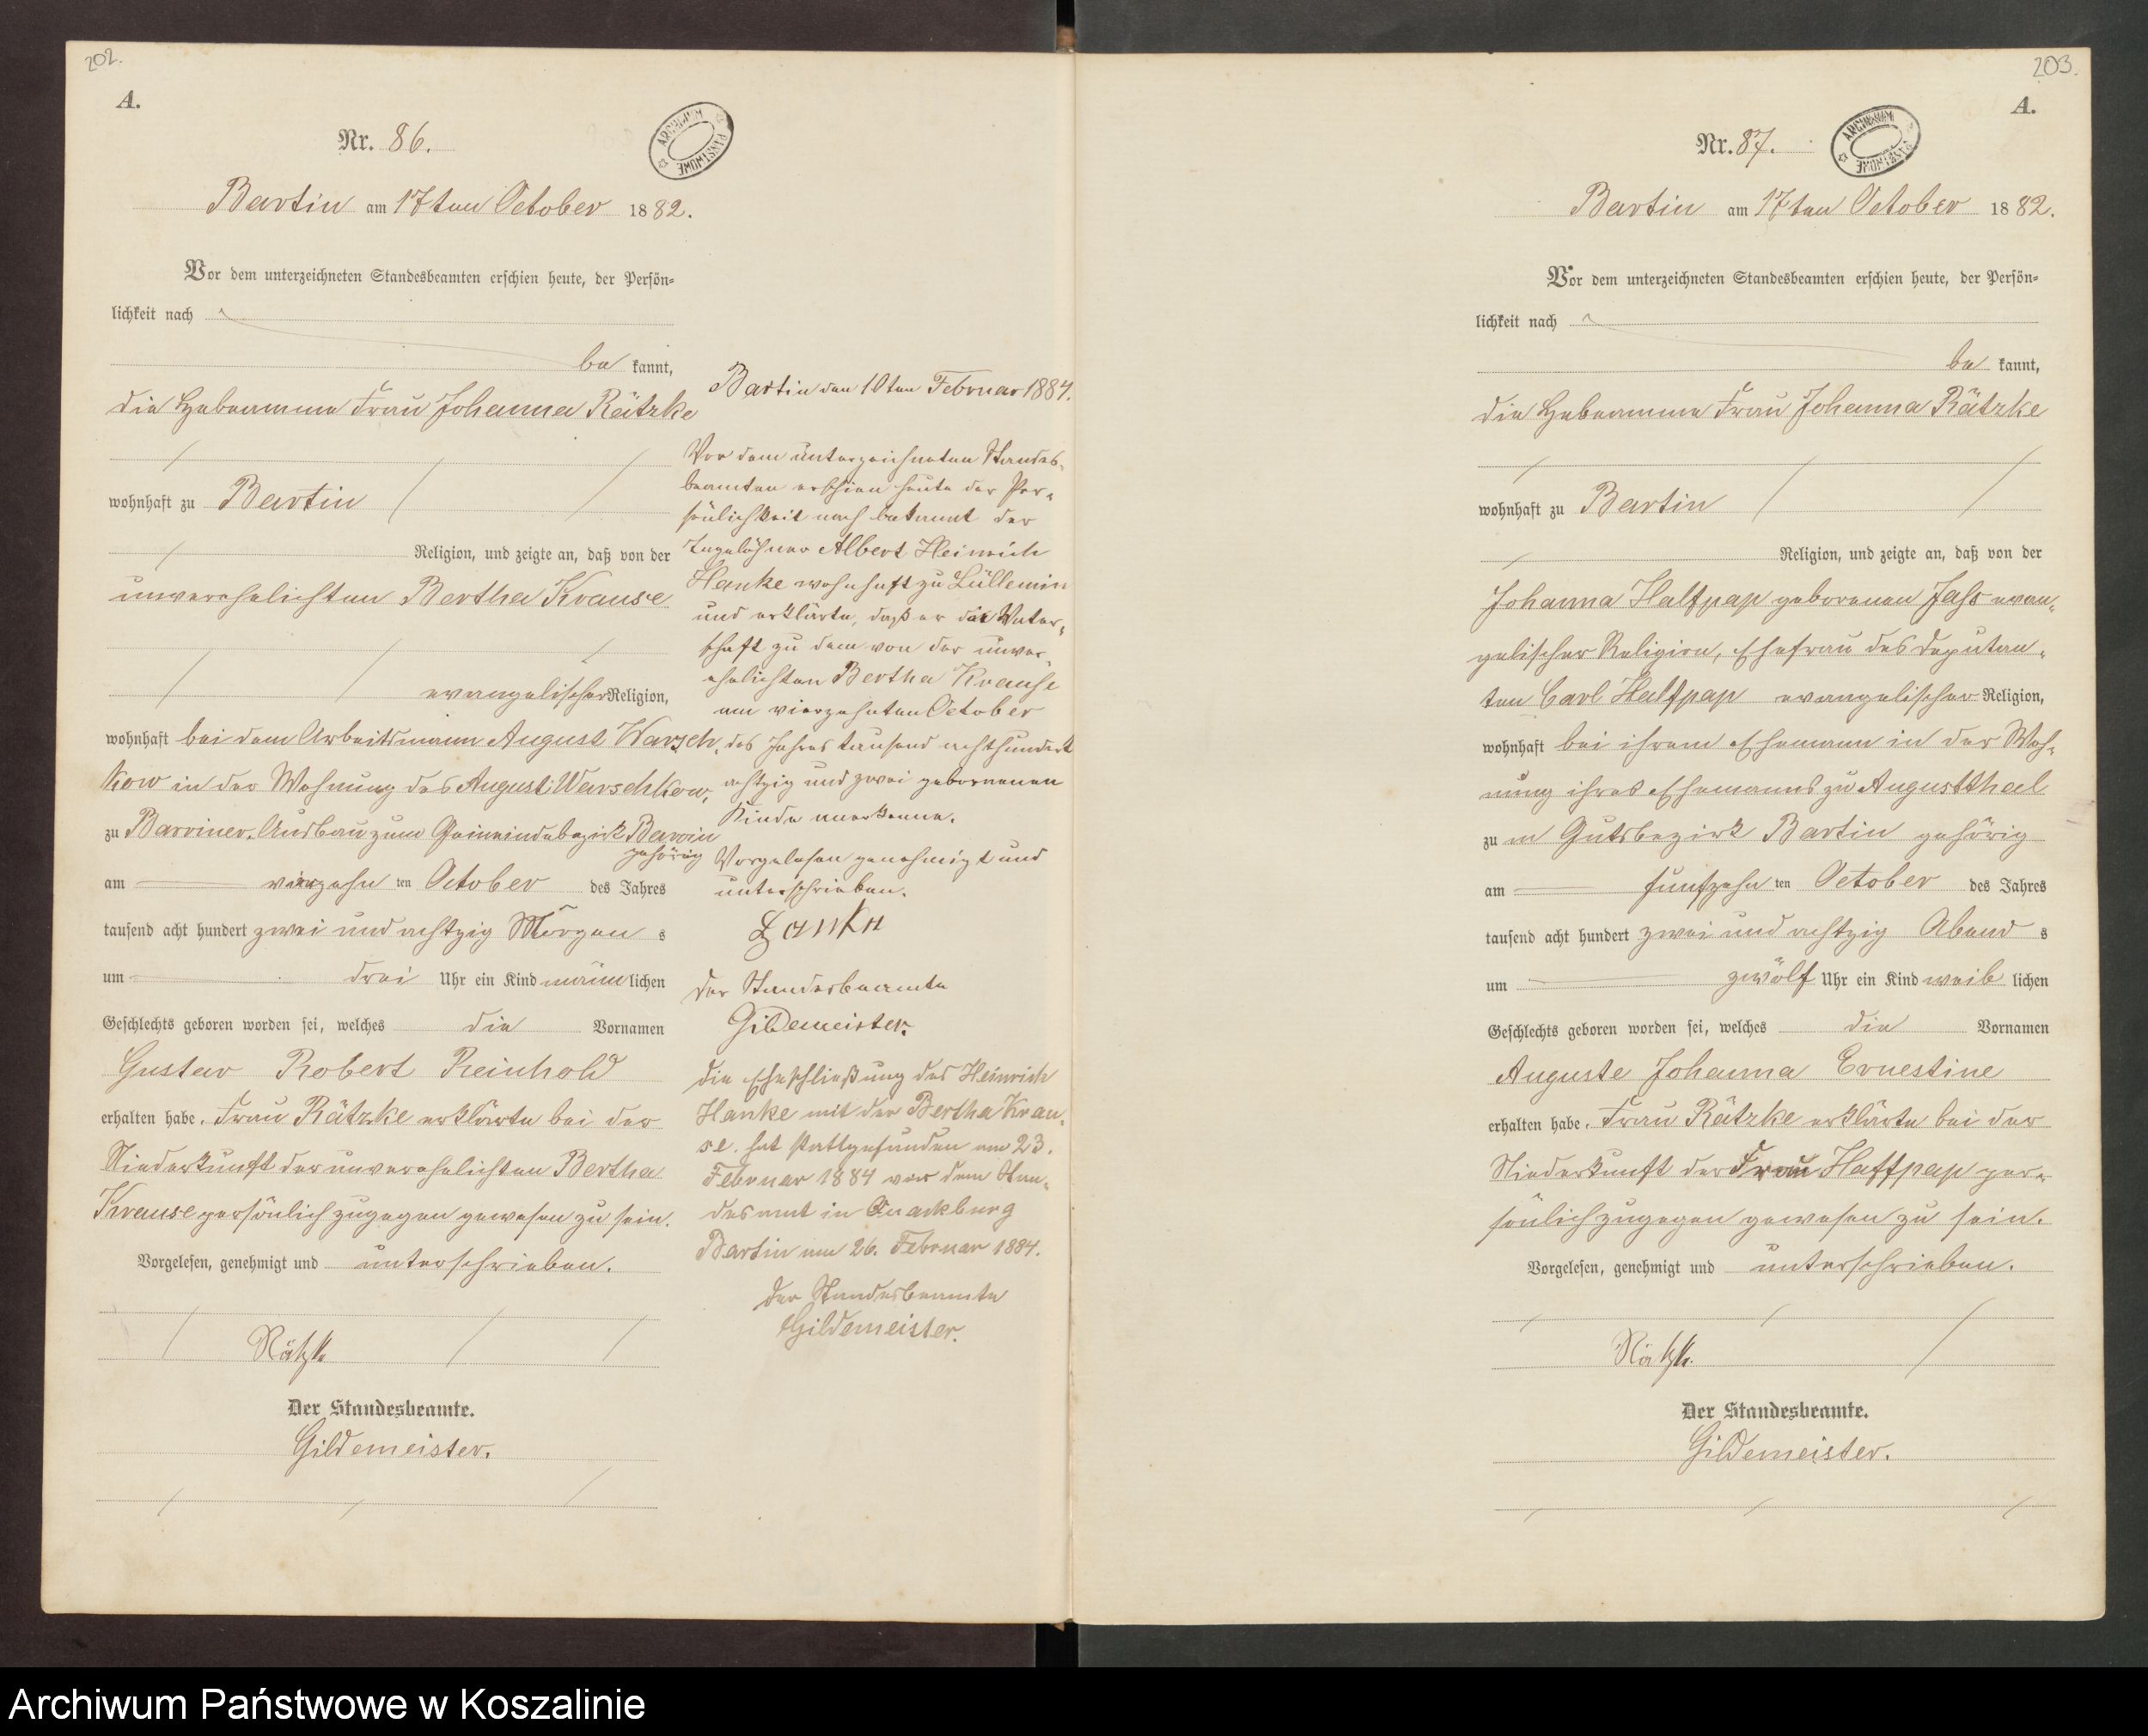 202.
A.
ARCHIWUM PAŃSTWOWE
Nr. 86.
Bartin am 17ten October 1882.
Vor dem unterzeichneten Standesbeamten erschien heute, der Persön-
lichkeit nach
be kannt,
die Hebeamme Frau Johanna Rätzke
wohnhaft zu Bartin
Religion, und zeigte an, daß von der
unverehelichten Bertha Krause
evangelischer Religion,
wohnhaft bei dem Arbeitsmann August Warsch-
kow in der Wohnung des August Warschkow,
zu Barviner-Ausbau zum Gemeindebezirk Barvin
gehörig
am vierzehn ten October des Jahres
tausend acht hundert zwei und achtzig Morgen s
um drei Uhr ein Kind männ lichen
Geschlechts geboren worden sei, welches die Vornamen
Gustav Robert Reinhold
erhalten habe. Frau Rätzke erklärte bei der
Niederkunft der unverehelichten Bertha
Krause persönlich zugegen gewesen zu sein.
Vorgelesen, genehmigt und unterschrieben.
Rätzke
Der Standesbeamte.
Gildemeister.
Bartin den 10ten Februar 1884.
Vor dem unterzeichneten Standes-
beamten erschien heute der Per-
sönlichkeit nach bekannt der
Tagelöhner Albert Heinrich
Hanke wohnhaft zu Lüllemin
und erklärte, daß er die Vater-
schaft zu dem von der unver-
ehelichten Bertha Krause
am vierzehnten October
des Jahres tausend achthundert
achtzig und zwei geborenen
Kinde anerkenne.
Vorgelesen genehmigt und
unterschrieben.
Hanke
Der Standesbeamte
Gildemeister.
Die Eheschließung des Heinrich
Hanke mit der Bertha Krau-
se. hat stattgefunden am 23.
Februar 1884 vor dem Stan-
desamt in Quackburg
Bartin am 26. Februar 1884.
Der Standesbeamte
Gildemeister.
203.
A.
ARCHIWUM PAŃSTWOWE
Nr. 87.
Bartin am 17ten October 1882.
Vor dem unterzeichneten Standesbeamten erschien heute, der Persön-
lichkeit nach
be kannt,
die Hebeamme Frau Johanna Rätzke
wohnhaft zu Bartin
Religion, und zeigte an, daß von der
Johanna Halfpap geborenen Jahs evan-
gelischer Religion, Ehefrau des Deputan-
ten Carl Halfpap evangelischer Religion,
wohnhaft bei ihrem Ehemann in der Woh-
nung ihres Ehemanns zu Augustthal
zu m Gutsbezirk Bartin gehörig
am funfzehn ten October des Jahres
tausend acht hundert zwei und achtzig Abend s
um zwölf Uhr ein Kind weib lichen
Geschlechts geboren worden sei, welches die Vornamen
Auguste Johanna Ernestine
erhalten habe. Frau Rätzke erklärte bei der
Niederkunft der Frau Halfpap per-
sönlich zugegen gewesen zu sein.
Vorgelesen, genehmigt und unterschrieben.
Rätzke.
Der Standesbeamte.
Gildemeister.
Archiwum Państwowe w Koszalinie